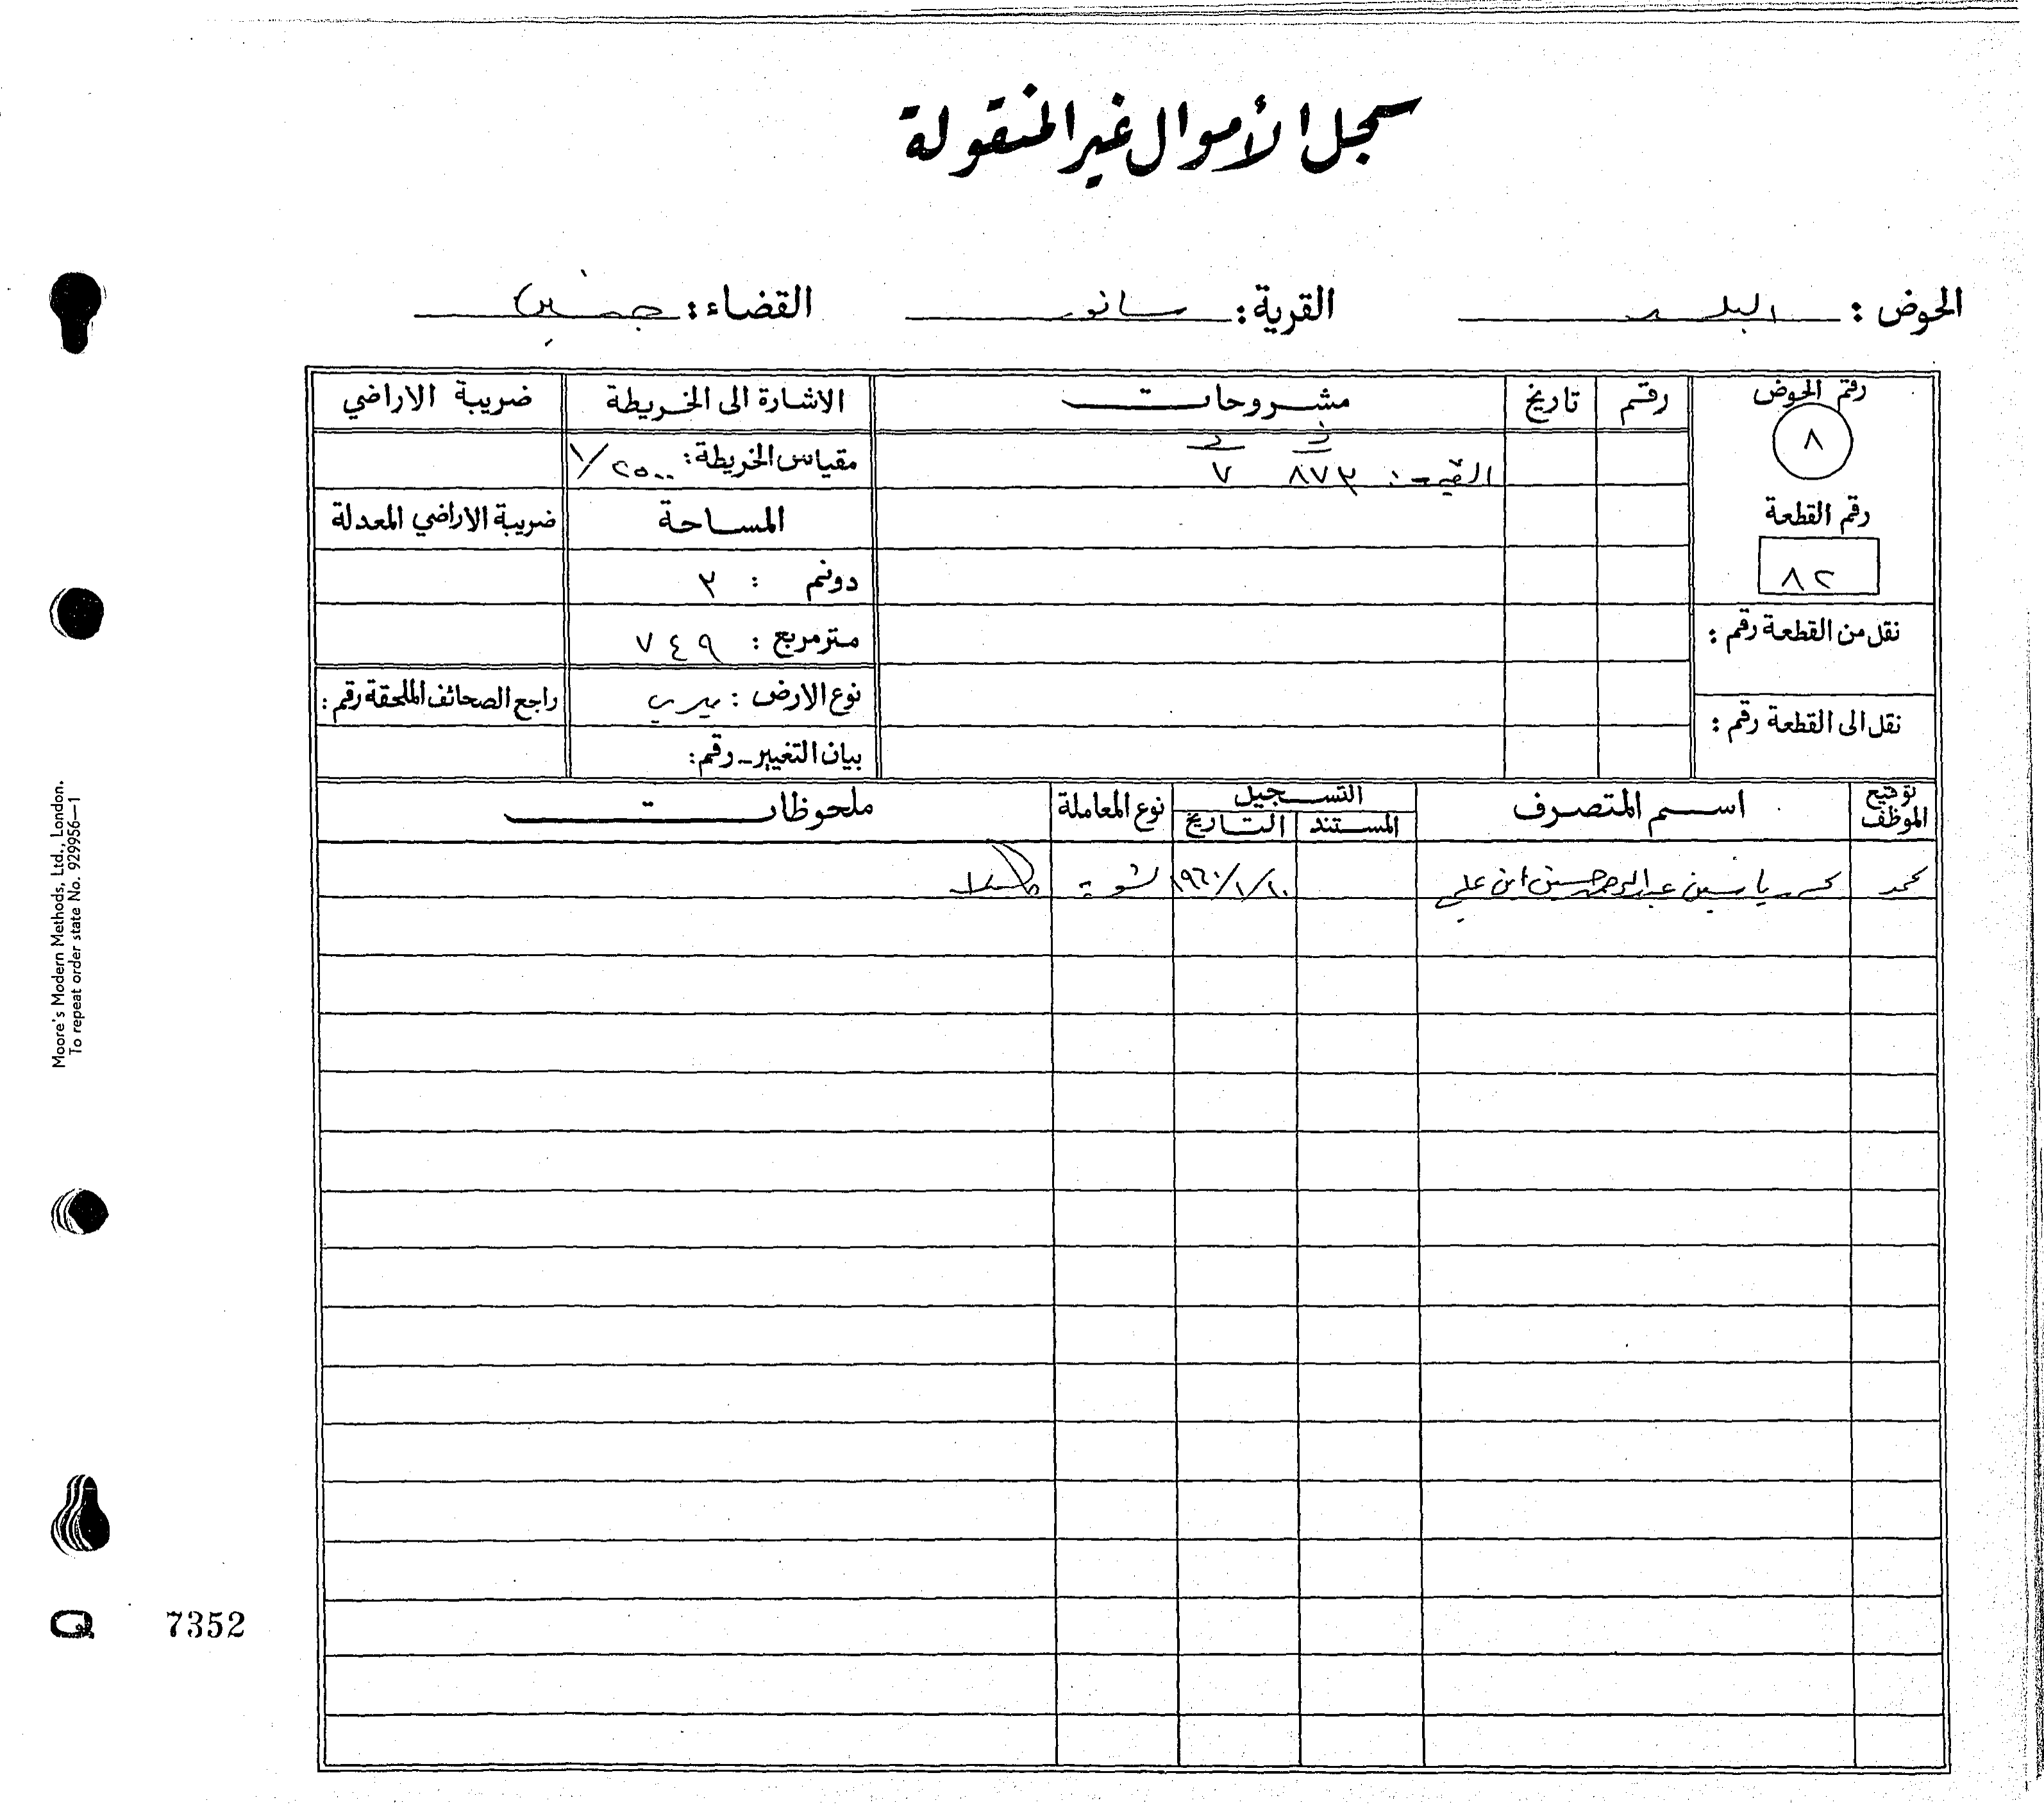 سجل الأموال غير المنقولة
الحوض : البلد القرية : سانور القضاء : جنين
رقم الحوض رقم تاريخ مشروحات الاشارة الى الخريطة ضريبة الاراضي
٨ ف د
القيمة : ٨٧٣ ٧ مقياس الخريطة : ١/٢٥٠٠
رقم القطعة المساحة ضريبة الاراضي المعدلة
٨٢ دونم : ٣
نقل من القطعة رقم : متر مربع : ٧٤٩
نوع الارض : ميري راجع الصحائف الملحقة رقم :
نقل الى القطعة رقم :
بيان التغيير - رقم :
توقيع الموظف اسم المتصرف التسجيل نوع المعاملة ملحوظات
المستند التاريخ
محمد ياسين عبد الرحمن حسين ابن علي ١٩٦٠/١/١٠ تسوية
Moore's Modern Methods, Ltd., London.
To repeat order state No. 9299956—1
Q 7352